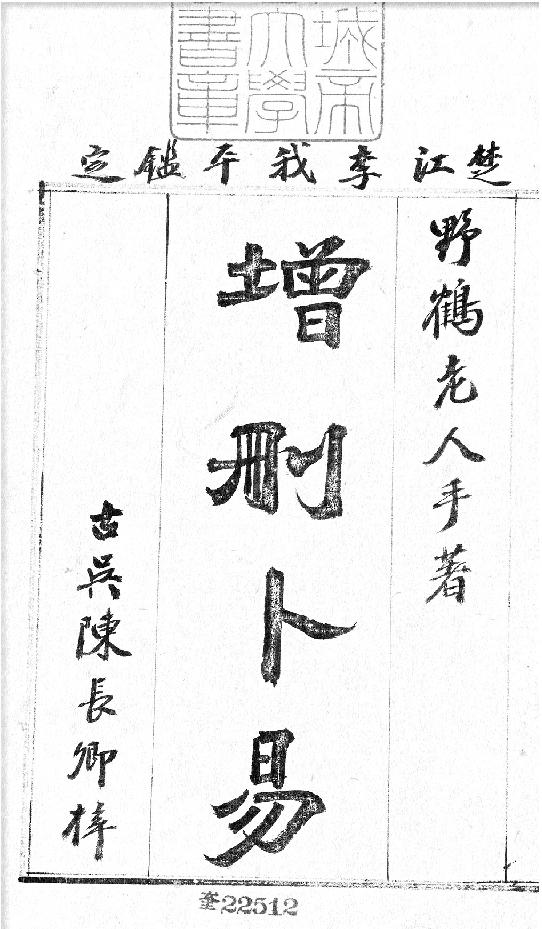 城帝
大學
書章
楚江李我平鑑定
野鶴老人手著
增刪卜易
古吳陳長卿梓
奎22512